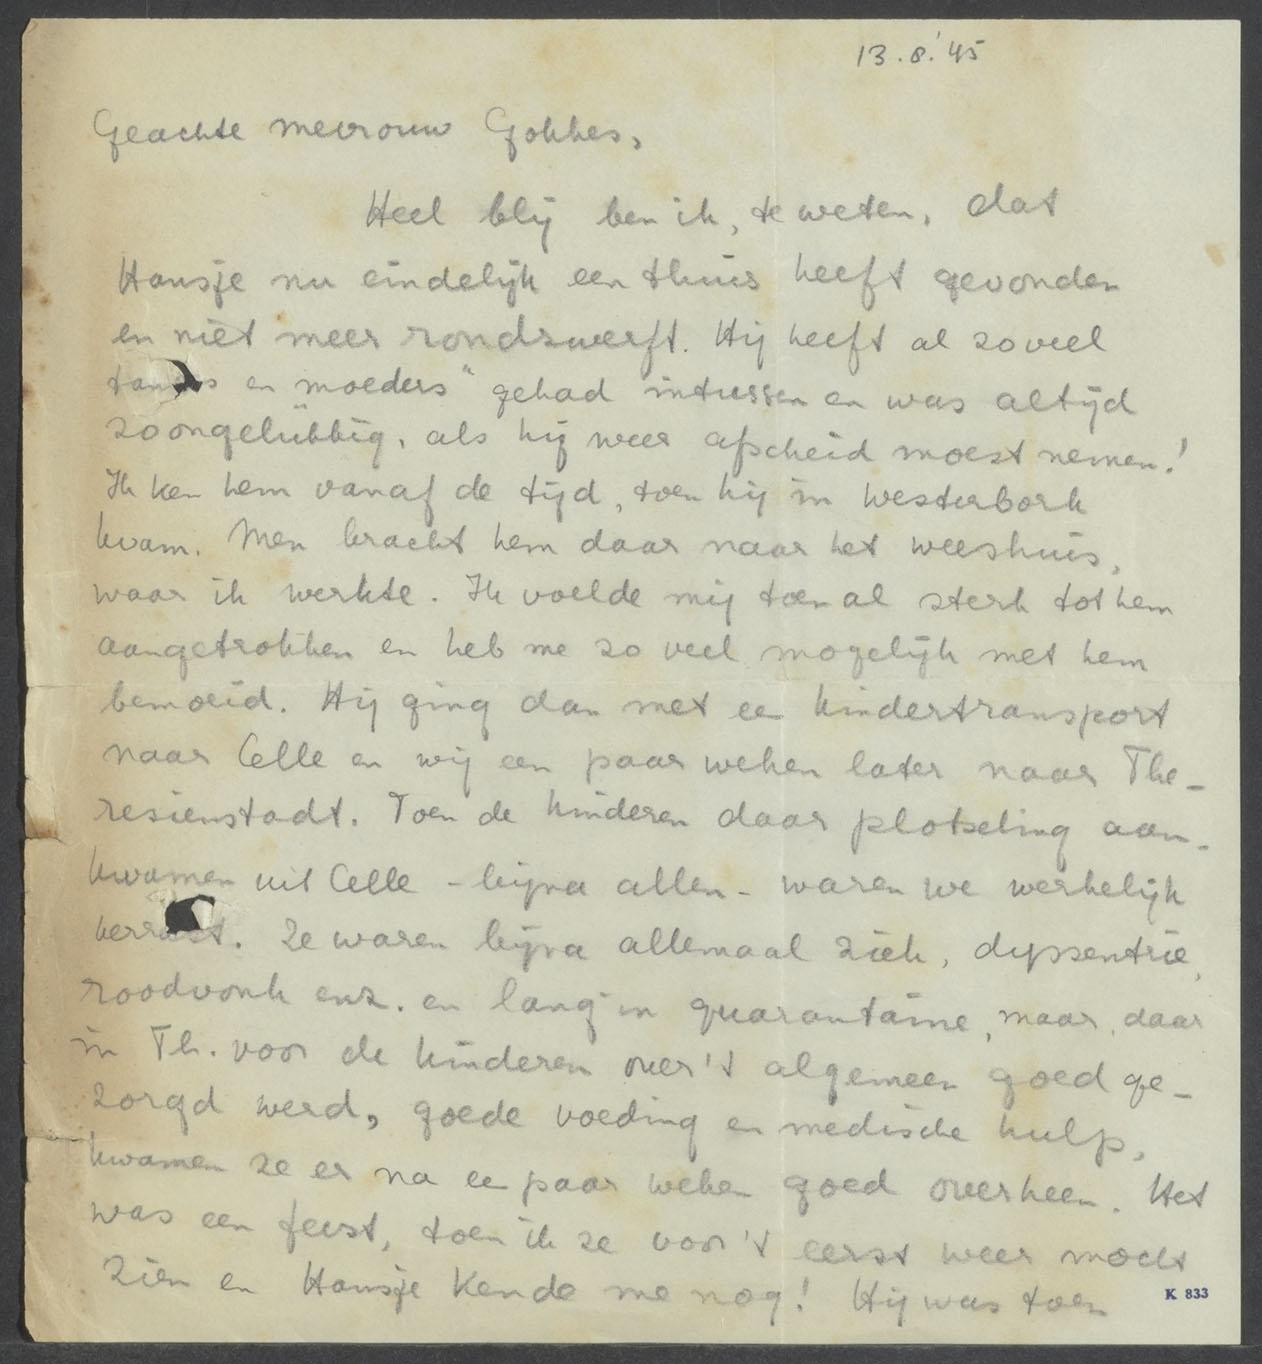 13.8.'45
Geachte mevrouw Gokkes,
Heel blij ben ik, te weten, dat
Hansje nu eindelijk een thuis heeft gevonden
en niet meer rondzwerft. Hij heeft al zoveel
en moeders" gehad intussen en was altijd
zo ongelükkig, als hij weer afscheid moest nemen!
Ik ken hem vanaf de tijd, toen hij in Westerbork
kwam. Men bracht hem daar naar het weeshuis,
waar ik werkte. Ik voelde mij toen al sterk tot hem
aangetrokken en heb me zo veel mogelijk met hem
bemoeid. Hij ging dan met een kindertransport
naar Celle en wij een paar weken later naar The-
resienstadt. Toen de kinderen daar plotseling aan-
kwamen uit Celle - bijna allen - waren we werkelijk
verrast. Ze waren bijna allemaal ziek, dyssentrie,
roodvonk enz. en lang in quarantaine, maar, daar
in Th. voor de kinderen over't algemeen goed ge-
zorgd werd, goede voeding en medische hulp,
kwamen ze er na een paar weken goed overheen. Het
was een feest, toen ik ze voor't eerst weer mocht
zien en Hansje kende me nog! Hij was toen
K 833